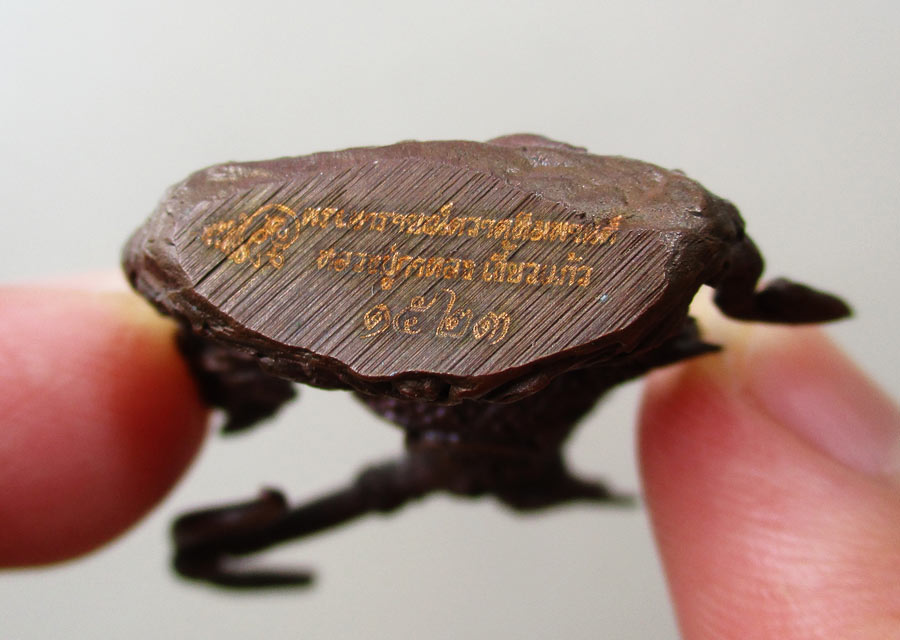 พระนารายณ์ตวาดหิมพานต์
หลวงปู่กาหลง เขี้ยวแก้ว
๑๕๒๓